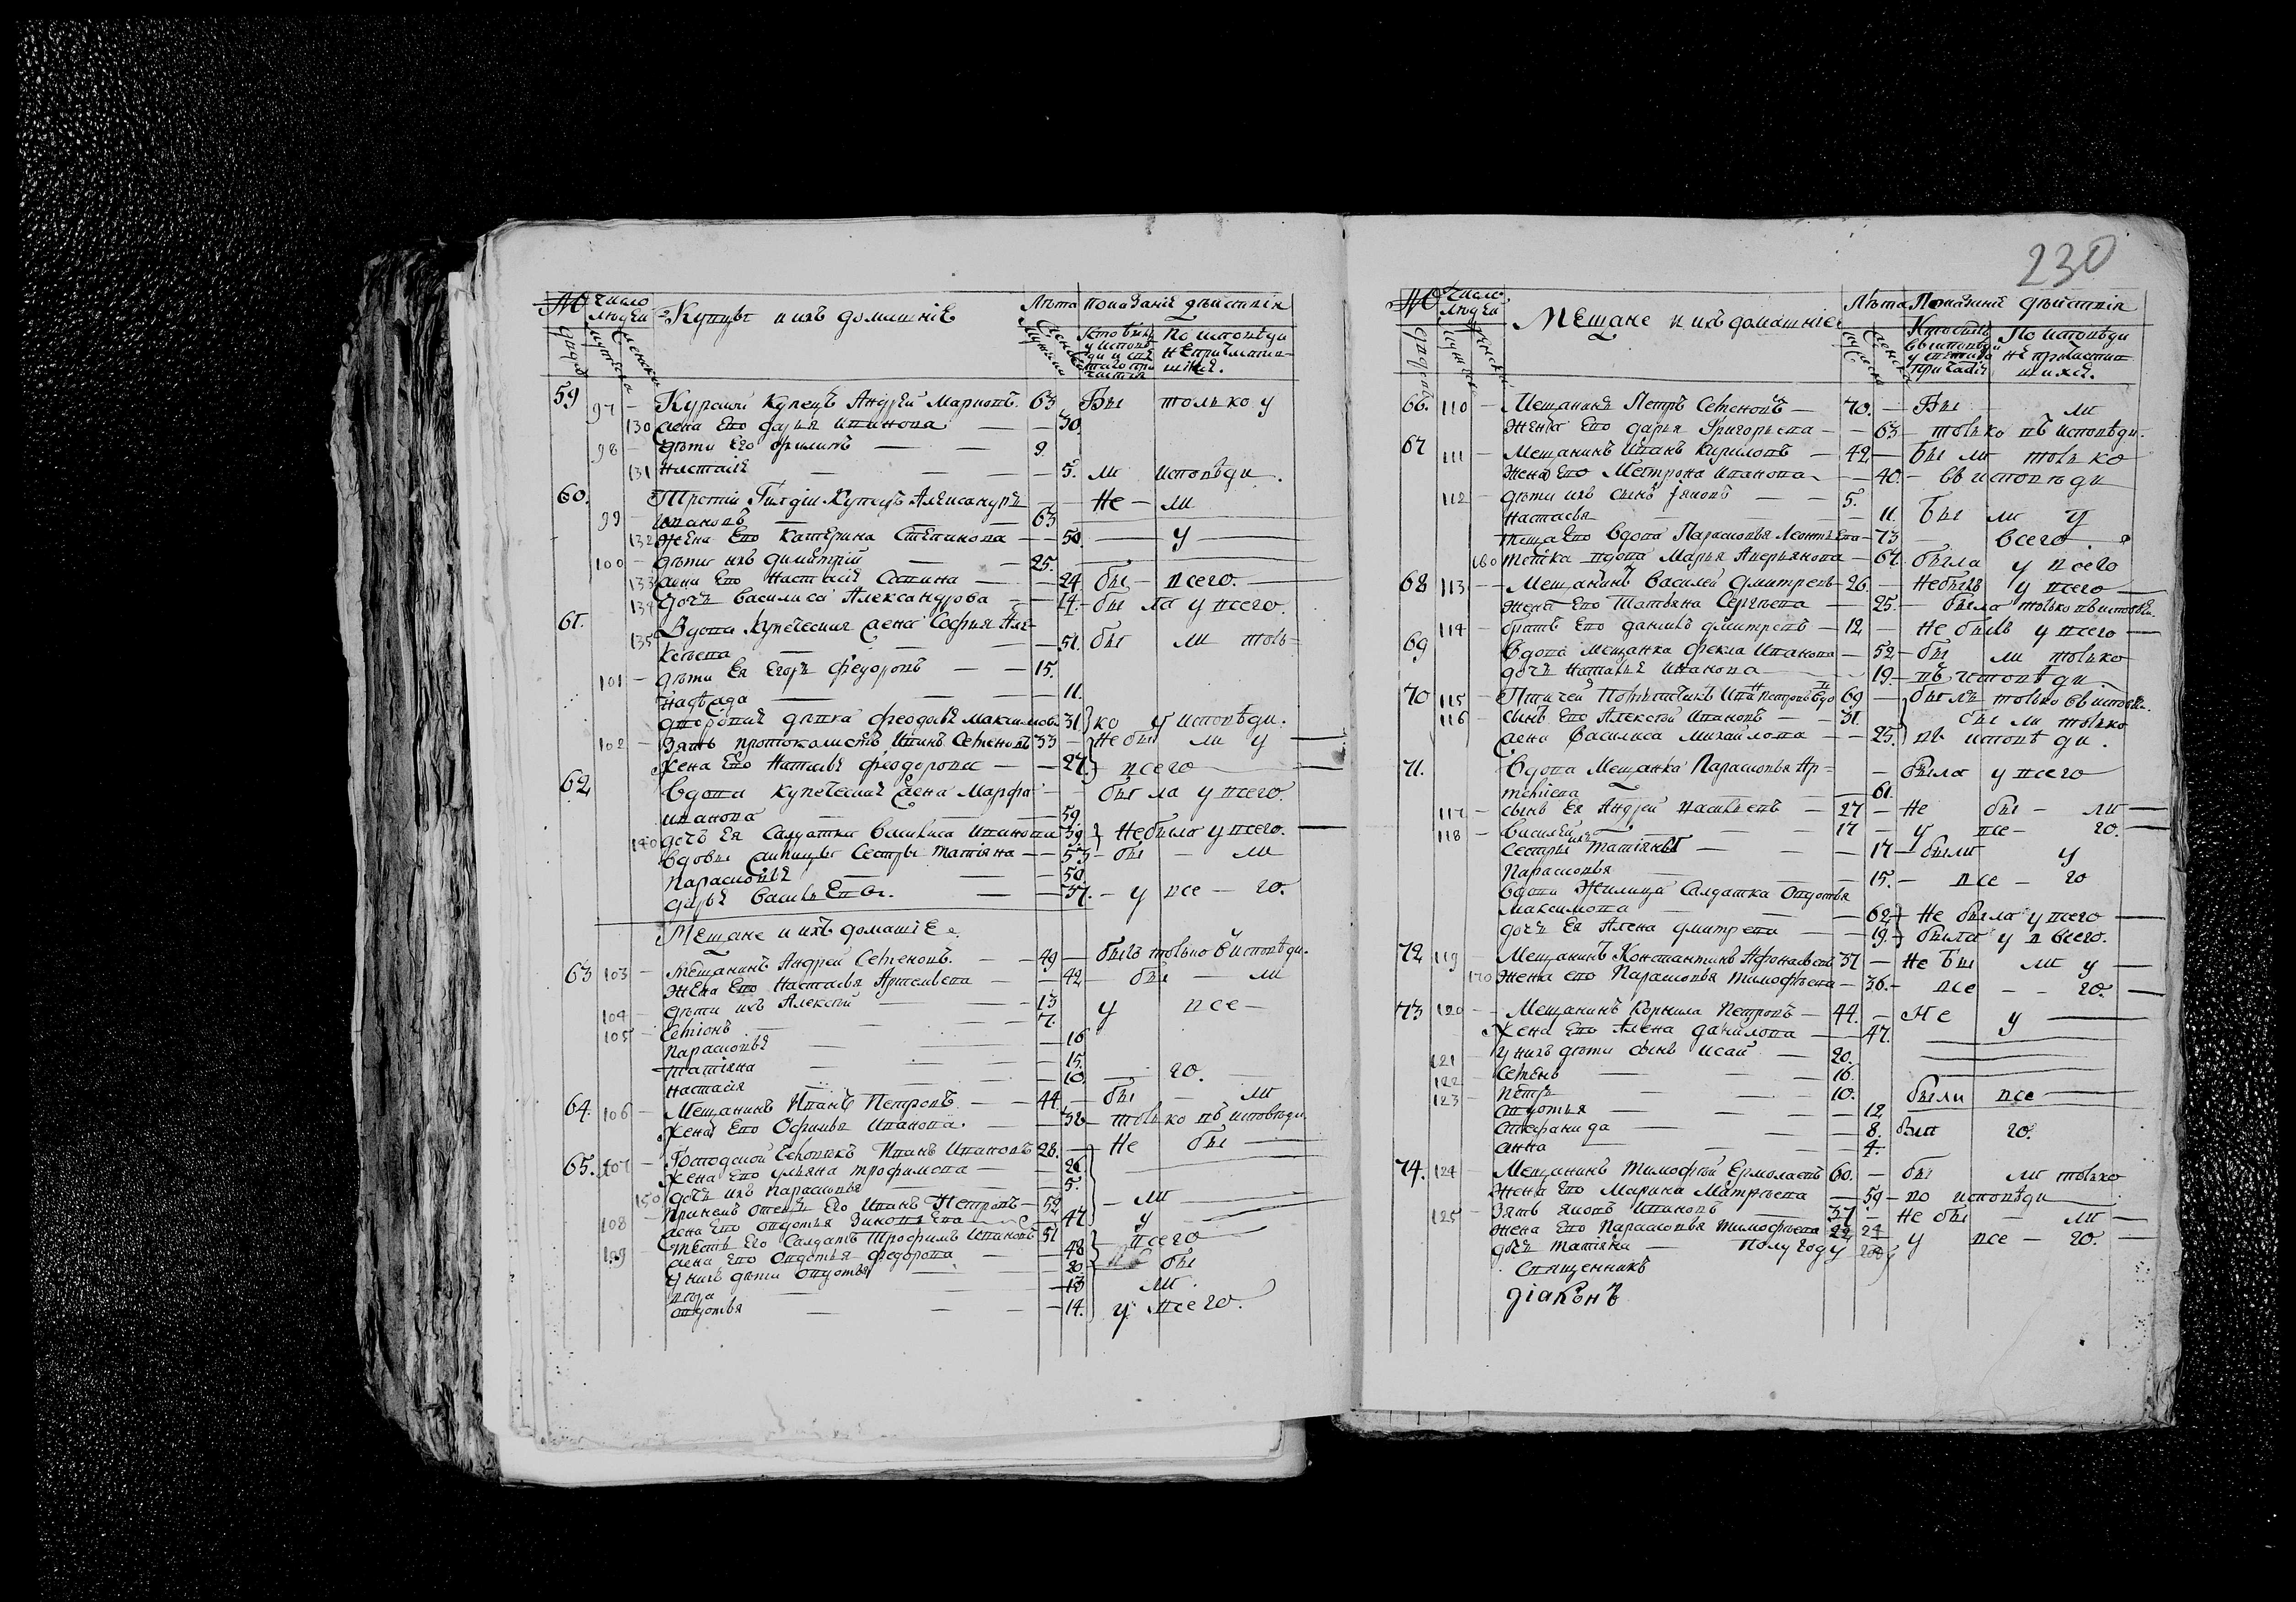 230
№ Число людей Купцы и ихъ домашніе Лѣта показаніе дѣйствія
59 97 — Курской купецъ Андрей Марковъ. 63 Бы только у
130 жена Ево дарья ивановна — 30.
98 — дѣти Его филипъ — 9.
131 настасія — 5. ли исповѣди.
60. Третіи Гилдіи Купецъ Александръ — Не — ли
99 ивановъ — 63
132 жена Ево Катерина Степанова — 50. у
100 — дѣти ихъ димитрій — 25.
133 жена Ево настасія Савина — 24. бы — всего.
134 дочь василиса Александрова — 14. — бы ла у всего.
61. Вдова купеческая жена Софья Але-
135 ксѣева — 51. бы ли толь-
101 — дѣти Ея Егоръ федоровъ — 15.
надежда — 11.
дворовая дѣвка феодосья максимова 31 ко у исповѣди.
102 — Зять протоколистъ иванъ Семеновъ 33 — Не бы ли у
жена Ево наталья феодорова — 27. всего
62 вдова купеческая жена Марфа — была у всего.
иванова — 59.
140 дочь Ея салдатка василиса иванова 39. Небыла у всего.
вдовы сестры татіяна — 53 — бы — ли
Парасковья — 50.
дарья васильева. — 37. — у все — го.
Мещане и ихъ домашніе.
63 103 — Мещанинъ Андрей Семеновъ. — 49 — былъ только в исповѣди.
Жена Ево настасья Артемьева — 42 бы — ли
104 — дѣти ихъ Алексѣй — 13 у все —
105 — Семіонъ — 7.
Парасковья — 16
татіяна — 15.
настасія — 10. — го.
64. 106 — Мещанинъ Иванъ Петровъ — 44. — бы — ли
жена Ево Офимья иванова. — 32 — только въ исповѣди
65. 107 — Городской Иванъ Ивановъ 28. — Не бы
жена Ево ульяна трофимова — 26.
150 дочь ихъ парасковья — 5.
108 — отецъ Его Иванъ Петровъ — 52 — ли
жена Ево овдотья — 47 у
109 — тесть Его Салдатъ Трофимъ ивановъ 51 всего
жена Ево овдотья федорова — 48 не бы
у нихъ дѣти овдотья — 20.
— 13 ли
овдотья — 14. у всего.
№ Число людей Мещане и ихъ домашніе Лѣта Показаніе дѣйствія
66. 110 — Мещанинъ Петръ Семеновъ — 70. — Бы — ли
жена Ево дарья Григорьева — 63 — только въ исповѣди.
67 111 — Мещанинъ иванъ Кириловъ — 42 — бы ли только
жена Ево Матрона иванова — 40. — въ исповѣди
112 — дѣти ихъ сынъ яковъ — 5.
настасья — 11. бы ли у
теща Ево вдова Парасковья Леонтьева — 73 — всего.
160 тетка вдова Марья Аверьянова — 67. была у всего
68 113 — Мещанинъ василей дмитревъ — 26. — Небылъ у всего —
жена Ево Татьяна Сергѣева — 25. — была только въ исповѣди.
114 — братъ Ево данилъ дмитревъ — 12 — Не былъ у всего —
69 вдова мещанка фекла иванова — 52 — бы ли только
дочь наталья иванова — 19. — въ исповѣди.
70 115 — 69 — былъ только въ исповѣди.
116 — сынъ Ево Алексѣй ивановъ — 31. бы ли только
жена василиса михайлова — 25. въ исповѣди.
71. вдова мещанка Парасковья Ар- — была у всего
темиева — 61.
117 — сынъ Ея Андрей васильевъ — 27 — Не бы — ли —
118 — василей — 17 — у все — го. —
сестры татіяны — 17 — были у
Парасковья — 15. — все — го
вдова жилица Салдатка овдотья
максимова — 62 Не была у всего —
дочь Ея Алена дмитрева — 19. была у всего.
72 119 — Мещанинъ Константинъ Афонасьевъ 37 — Не бы ли у —
170 Жена ево Парасковья тимофѣева — 36. — все — го. —
73 120 — Мещанинъ Корнила Петровъ — 44. — Не у —
жена Ево Алена данилова — 47.
121 — у нихъ дѣти сынъ исай — 20.
122 — Семенъ — 16.
123 — петръ — 10. были все —
овдотья — 12
стефанида — 8. го.
анна — 4.
74. 124 — Мещанинъ тимофѣй Ермолаевъ 60. — бы ли только
жена Ево марина матвѣева — 59 — во исповѣди
125 — зять яковъ ивановъ — 37 — Не бы — ли —
жена Ево Парасковья тимофѣева 22 у все — го. —
дочь татіяна — полу году
священникъ
діаконъ